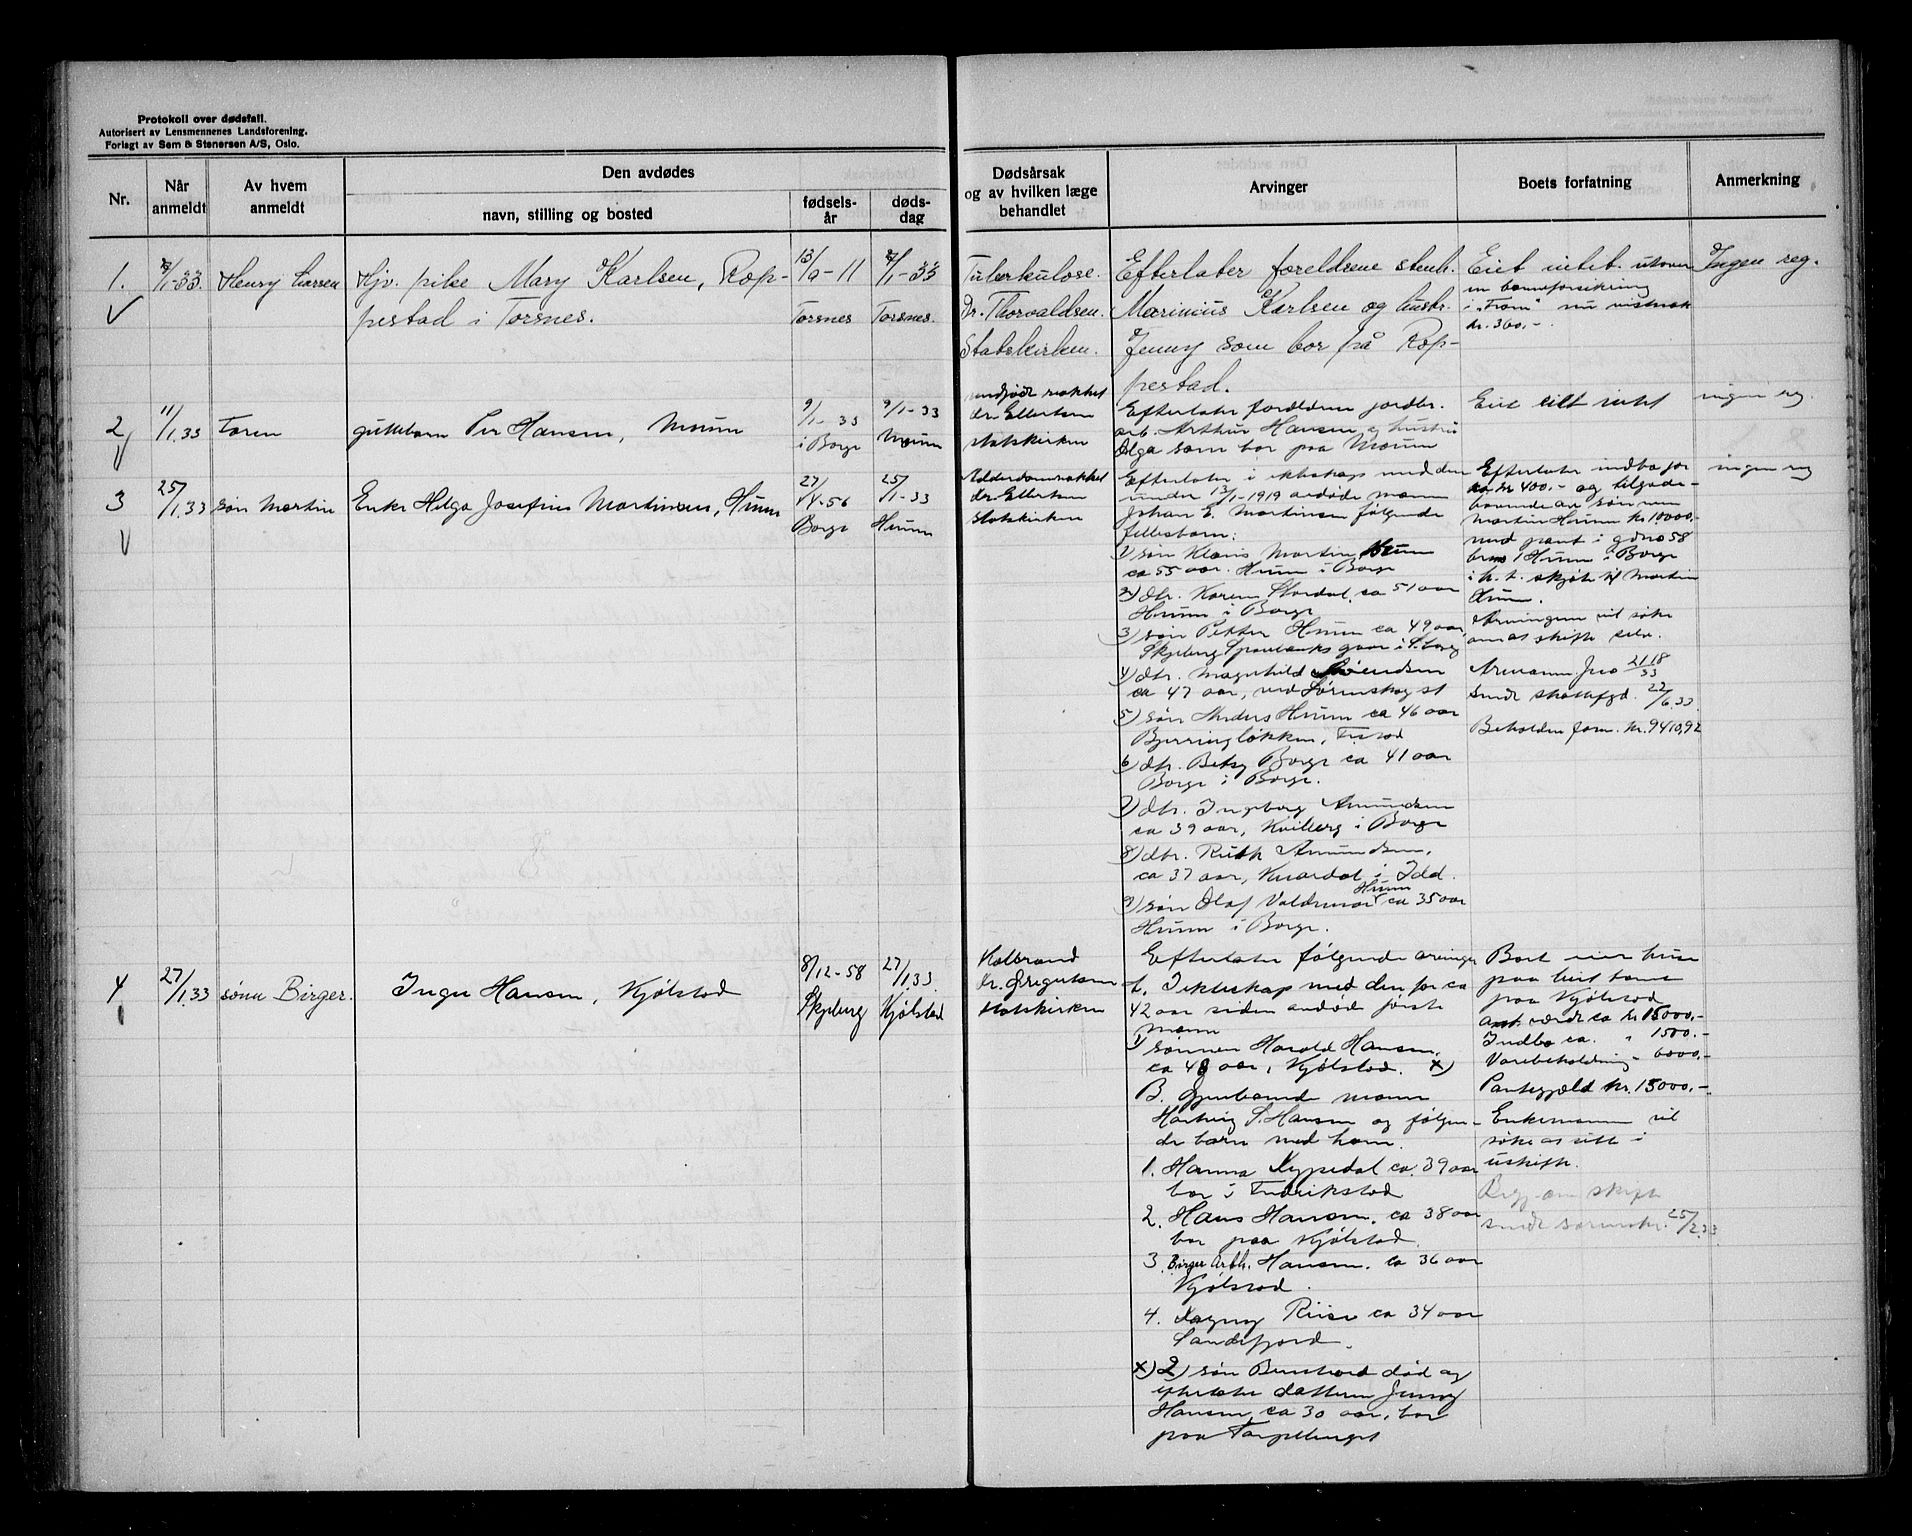 Protokoll over dødsfall.
Autorisert av Lensmennenes Landsforening.
Forlagt av Sem & Stenersen A/S, Oslo.
Nr.
Når anmeldt
Av hvem anmeldt
Den avdødes
navn, stilling og bosted
fødsels-år
døds-dag
Dødsårsak og av hvilken læge behandlet
Arvinger
Boets forfatning
Anmerkning
1.
/1-33.
Henry Larsen
Hjv. pike Mary Karlsen, Rop-
pestad i Torsnes.
13/9-11
Torsnes
/1-33
Torsnes.
Tuberkulose.
Dr. Thorvaldsen.
Statskirken.
Efterlater foreldrene stenh.
Marinius Karlsen og hustr.
Jenny som bor på Rop-
pestad.
Eiet intet utover
en barneforsikring
i "Fram"
kr. 360,-
Ingen reg.
2
11/1.33
Faren
guttebarn Per Hansen, Moum
9/1-33
i Borge
9/1-33
Moum
dr. Ellertsen
statskirken
Efterlater foreldrene jordbr.
arb. Arthur Hansen og hustru
Olga som bor paa Moum
Eiet intet
ingen reg.
3
25/1.33
søn Martin
Enke Helga Josefine Martinsen, Hunn
27/-56
Borge
25/1-33
Hunn
Alderdomssvakhet
dr. Ellertsen
statskirken
Efterlater i ekteskap med den
under 13/1-1919 avdøde mann
Johan E. Martinsen følgende
fellesbarn:
1) søn Klaus Martin Hunn
ca 55 aar. Hunn i Borge
2) dtr. Karen Stordal, ca 51 aar
Hunn i Borge
3) søn Petter Hunn ca 49 aar,
Skjeberg Sparebanks gaar i S.borg
4) dtr. Magnhild
ca 47 aar, ved Lørenskog st
5) søn Anders Hunn ca 46 aar
Bjerringløkken,
6) dtr. Betsy Borge ca 41 aar
Borge i Borge.
7) dtr. Ingeborg Amundsen
ca 39 aar, Kviberg i Borge
8) dtr. Ruth Amundsen,
ca 37 aar, i Idd.
9) søn Olaf Valdemar Hunn ca 35 aar
Hunn i Borge.
Efterlater indbo for
ca kr 400.- og tilgode-
havende av søn
Martin Hunn kr 10000.-
med pant i gdno 58
brno 1 Hunn i Borge
i h. t. skjøte til Martin
Hunn.
Arvingene vil søke
om at skifte selv.
2118/33
22/6.33.
Beholden form. kr. 9410,92
ingen reg
4
27/1.33
sønn Birger.
Inger Hansen, Kjølstad
8/12-58
Skjeberg
27/1.33.
Kjølstad
Koldbrand
Dr. Gregertsen
statskirken
Efterlater følgende arvinger
A. I ekteskap med den for ca
42 aar siden avdøde første
mann
1) sønnen Harald Hansen,
ca 48 aar, Kjølstad. x)
B. Gjenlevende mann
Hartvig S. Hansen og følgen-
de barn med ham.
1. Hanna ca. 39 aar
bor i Fredrikstad
2. Hans Hansen. ca 38 aar
bor paa Kjølstad.
3. Birger Arth. Hansen. ca 36 aar
Kjølstad.
4. Dagny Riise ca 34 aar
Sandefjord.
x) 2) søn Bernhard død og
efterlater datteren Jenny
Hansen, ca 30 aar, bor
paa Torpeberget
Boet eier huse
paa leiet tomt
paa Kjølstad
ant. værdi ca kr 15000.-
Indbo ca. " 1500.-
Varebeholdning - 6000.-
Pantegjeld kr. 15000.-
Enkemannen vil
søke at sitte i
uskifte.
Begj. om skifte
sendt sorenskr. 25/2.33